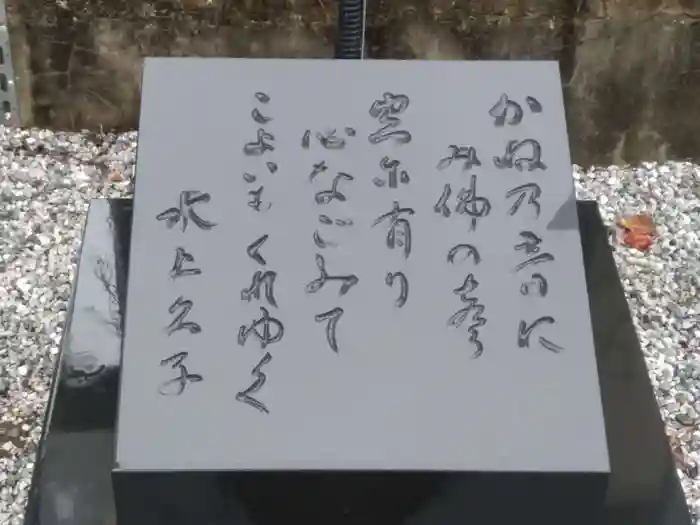 かぬ乃音に
み佛の声
尓有り
心なごみて
こよいもくれゆく
水上久子